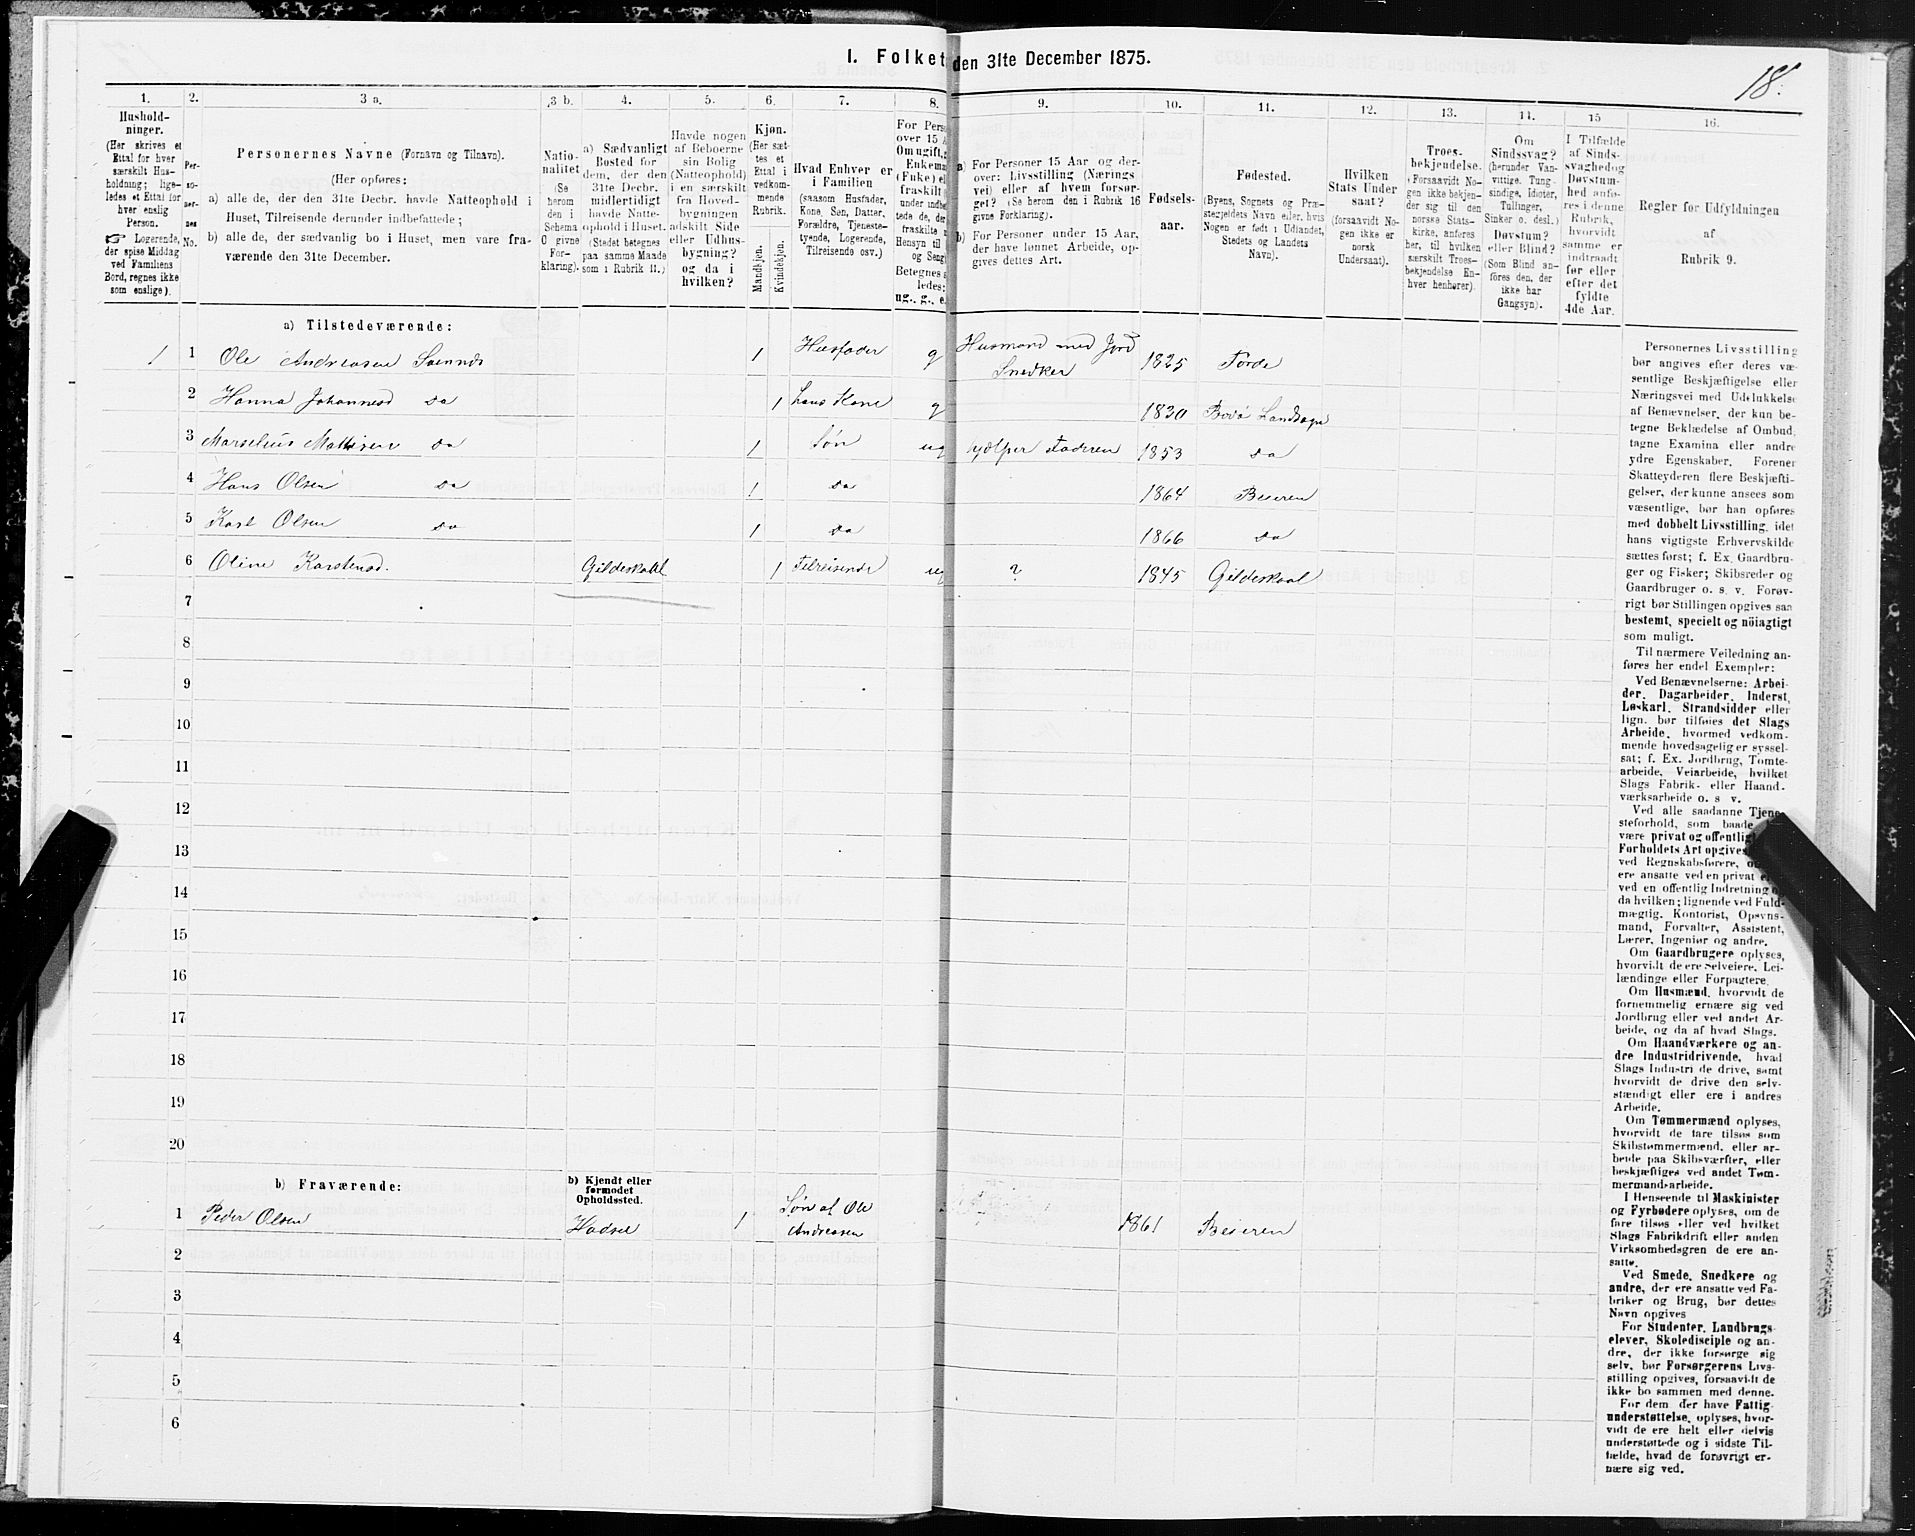 18.
I. Folket den 31te December 1875.
1. 2. 3 a. 3 b. 4. 5. 6. 7. 8. 9. 10. 11. 12. 13. 14. 15 16.
Hushold-
ninger.
(Her skrives et
Ettal for hver
særskilt Hus-
holdning; lige-
ledes et Ettal for
hver enslig
Person.
☞ Logerende,
der spise Middag
ved Familiens
Bord, regnes ikke
som enslige).
Per-
so-
ner-
nes
No.
Personernes Navne (Fornavn og Tilnavn).
(Her opføres:
a) alle de, der den 31te Decbr. havde Natteophold i
Huset, Tilreisende derunder indbefattede;
b) alle de, der sædvanlig bo i Huset, men vare fra-
værende den 31te December.
Natio-
nalitet
(Se
herom
den i
Schema
C givne
For-
klaring).
a) Sædvanligt
Bosted for
dem, der den
31te Decbr.
midlertidigt
havde Natte-
ophold i Huset.
(Stedet betegnes
paa samme Maade
som i Rubrik 11.)
Havde nogen
af Beboerne
sin Bolig
(Natteophold)
i en særskilt
fra Hoved-
bygningen
adskilt Side
eller Udhus-
bygning?
og da i
hvilken?
Kjøn.
(Her sæt-
tes et
Ettal i
vedkom-
mende
Rubrik.
Mandkjøn.
Kvindekjøn.
Hvad Enhver er
i Familien
(saasom Husfader,
Kone, Søn, Datter,
Forældre, Tjeneste-
tyende, Logerende,
Tilreisende osv.)
For Perso
over 15 A
Om ugift,
Enkema
(Enke) el
fraskilt
under indbe
tede de, de
fraskilte
Hensyn til
og Seng
Betegnes s
ledes:
ug., g., e.
a) For Personer 15 Aar og der-
over: Livsstilling (Nærings
vei) eller af hvem forsør-
get? (Se herom den i Rubrik 16
givne Forklaring).
b) For Personer under 15 Aar,
der have lønnet Arbeide, op-
gives dettes Art.
Fødsels-
aar.
Fødested.
(Byens, Sognets og Præ-
stegjeldets Navn eller, hvis
Nogen er født i Udlandet,
Stedets og Landets
Navn).
Hvilken
Stats Under
saat?
(forsaavidt No-
gen ikke er
norsk
Undersaat).
Troes-
bekjendelse.
(Forsaavidt No-
gen ikke bekjen-
der sig til den
norske Stats-
kirke, anføres
her, til hvilken
særskilt Troes-
bekjendelse En-
hver henhører).
Om
Sindssvag?
(herunder Van-
vittige, Tung-
sindige, Idioter,
Tullinger,
Sinker o. desl.)
Døvstum?
eller Blind?
(Som Blind an-
føres den, der
ikke har
Gangsyn).
I Tilfælde
af Sinds-
svaghed og
Døvstum-
hed anfø-
res i denne
Rubrik,
hvorvidt
samme er
indtraadt
før eller
efter det
fyldte
4de Aar.
Regler for Udfyldningen
af
Rubrik 9.
a) Tilstedeværende:
1 1 Ole Andreasen 1 Husfader g Husmand med Jord Snedker 1825 Førde
2 Hanna Johannesd do 1 hans Kone g 1830 Bodø Landsogn
3 Marselius Mathisen do 1 Søn ug hjælper Faderen 1853 do
4 Hans Olsen do 1 do 1864 Beieren
5 Karl Olsen do 1 do 1866 do
6 Oline Karstensd. Gildeskaal 1 Tilreisende ug ? 1845 Gildeskaal
7
8
9
10
11
12
13
14
15
16
17
18
19
20
b) Fraværende:
b) Kjendt eller
formodet
Opholdssted.
1 Peder Olsen Hadsel 1 Søn af Ole Andreasen 1861 Beieren
2
3
4
5
6
Personernes Livsstilling
bør angives efter deres væ-
sentlige Beskjæftigelse eller
Næringsvei med Udelukkelse
af Benævnelser, der kun be-
tegne Beklædelse af Ombud,
tagne Examina eller andre
ydre Egenskaber. Forener
Skatteyderen flere Beskjæfti-
gelser, der kunne ansees som
væsentlige, bør han opføres
med dobbelt Livsstilling, idet
hans vigtigste Erhvervskilde
sættes først; f. Ex. Gaardbru-
ger og Fisker; Skibsreder og
Gaardbruger o. s. v. Forøv-
rigt bør Stillingen opgives saa
bestemt, specielt og nöiagtigt
som muligt.
Til nærmere Veiledning an-
føres her endel Exempler:
Ved Benævnelserne: Arbei-
der, Dagarbeider, Inderst,
Løskarl, Strandsidder eller
lign. bør tilføies det Slags
Arbeide, hvormed vedkom-
mende hovedsagelig er syssel-
sat; f. Ex. Jordbrug, Tomte-
arbeide, Veiarbeide, hvilket
Slags Fabrik- eller Haand-
værksarbeide o. s v.
Ved alle saadanne Tjene-
steforhold, som baade
være privat og offentlig
Forholdets Art opgives
ved Regnskabsførere,
ere ansatte ved en privat
ved en offentlig Indretning
da hvilken; lignende ved Fuld-
mægtig, Kontorist, Opsyns-
mand, Forvalter, Assistent,
Lærer, Ingeniør og andre.
Om Gaardbrugere oplyses,
hvorvidt de ere Selveiere, Lei-
lændinge eller Forpagtere.
Om Husmænd, hvorvidt de
fornemmelig ernære sig ved
Jordbrug eller ved andet Ar-
beide, og da af hvad Slags.
Om Haandværkere og an-
dre Industridrivende, hvad
Slags Industri de drive, samt
hvorvidt de drive den selv-
stændigt eller ere i andres
Arbeide.
Om Tømmermænd oplyses,
hvorvidt de fare tilsøs som
Skibstømmermænd, eller ar-
beide paa Skibsværfter, eller
beskjæftiges ved andet Tøm-
mermandsarbeide.
I Henseende til Maskinister
og Fyrbødere oplyses, om de
fare tilsøs eller ved hvilket
Slags Fabrikdrift eller anden
Virksomhedsgren de ere an-
satte.
Ved Smede, Snedkere og
andre, der ere ansatte ved Fa-
briker og Brug, bør dettes
Navn opgives
For Studenter, Landbrugs-
elever, Skoledisciple og an-
dre, der ikke forsørge sig
selv, bør Forsørgerens Livs-
stilling opgives, forsaavidt de
ikke bo sammen med denne.
For dem der have Fattig-
understøttelse, oplyses, hvor-
vidt de ere helt eller delvis
understøttede og i sidste Til-
fælde, hvad de forøvrigt er-
nære sig ved.